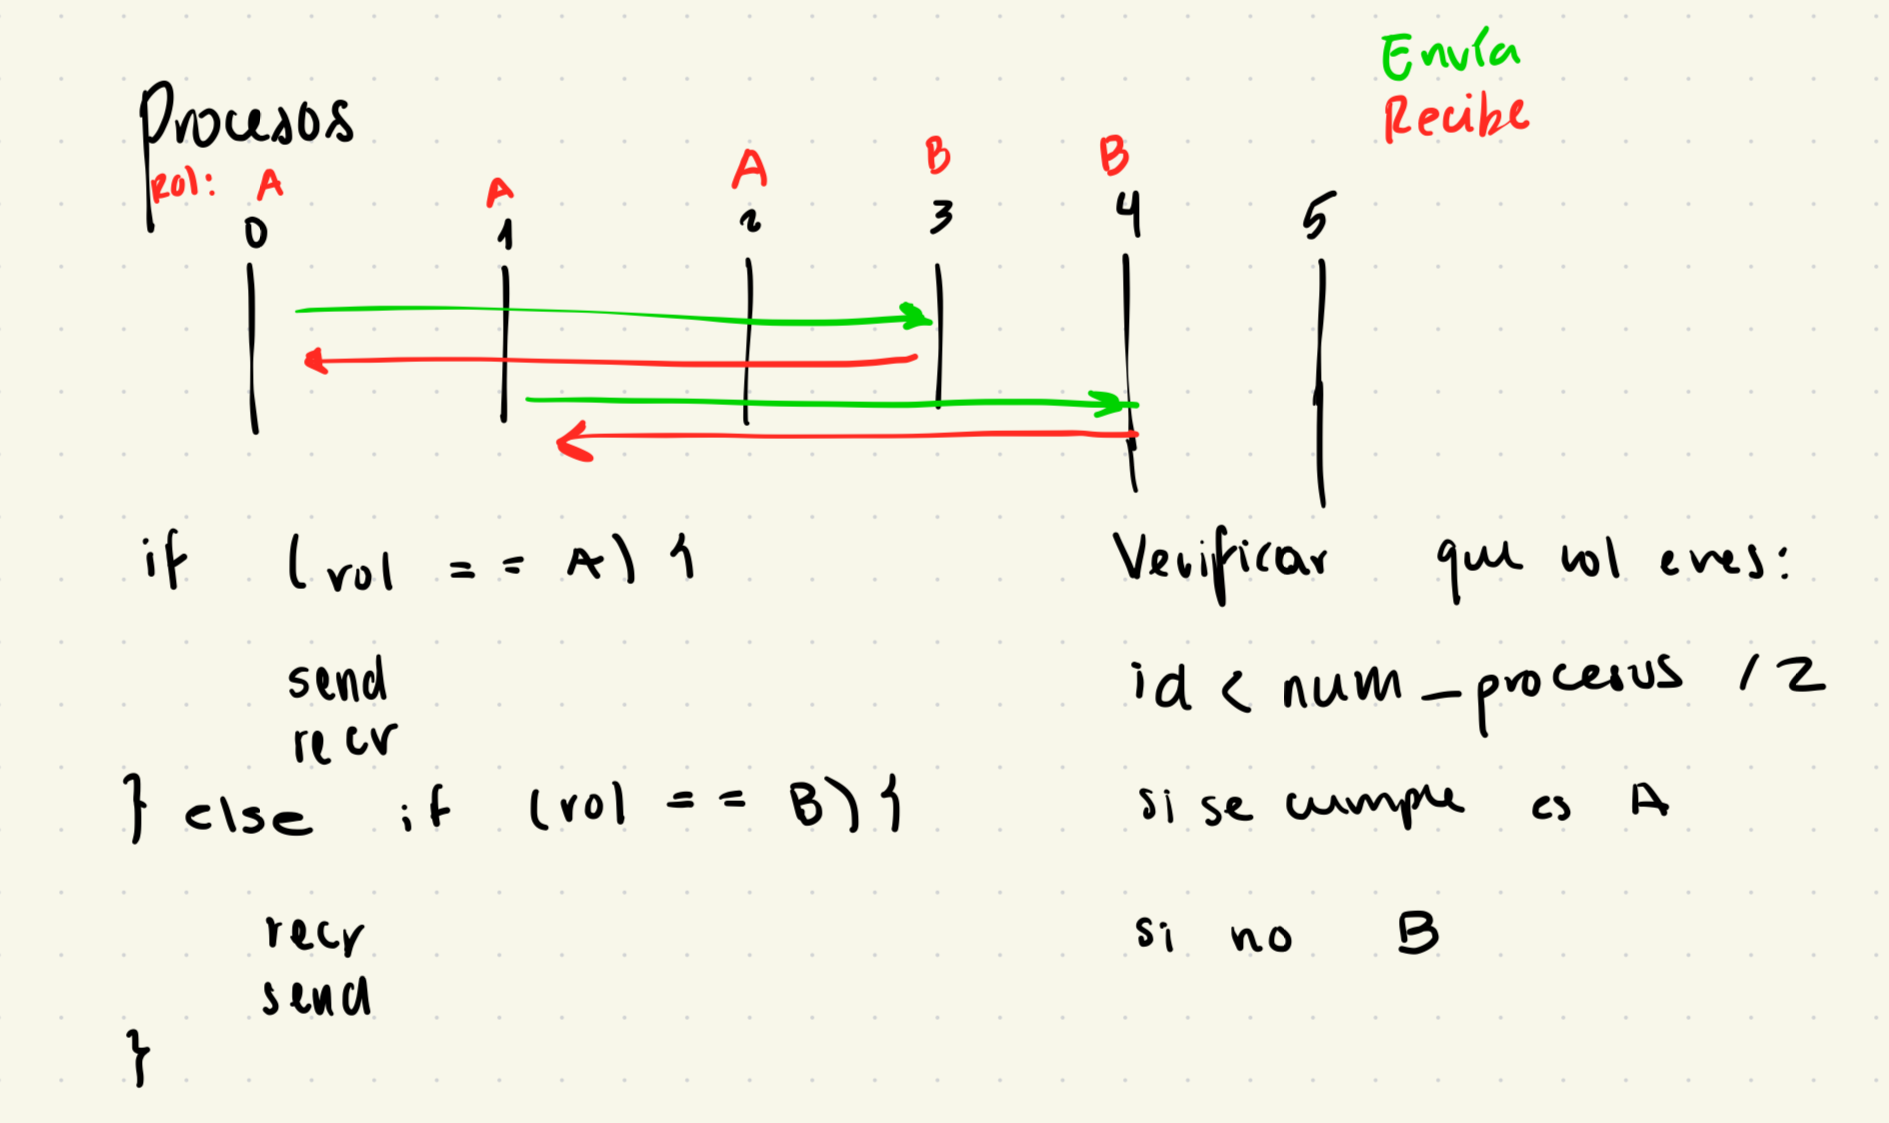 Envía
Recibe
Procesos
Rol: A A A B B
0 1 2 3 4 5
if (rol == A) {
send
recv
} else if (rol == B) {
recv
send
}
Verificar que rol eres:
id < num_procesos / 2
si se cumple es A
si no B